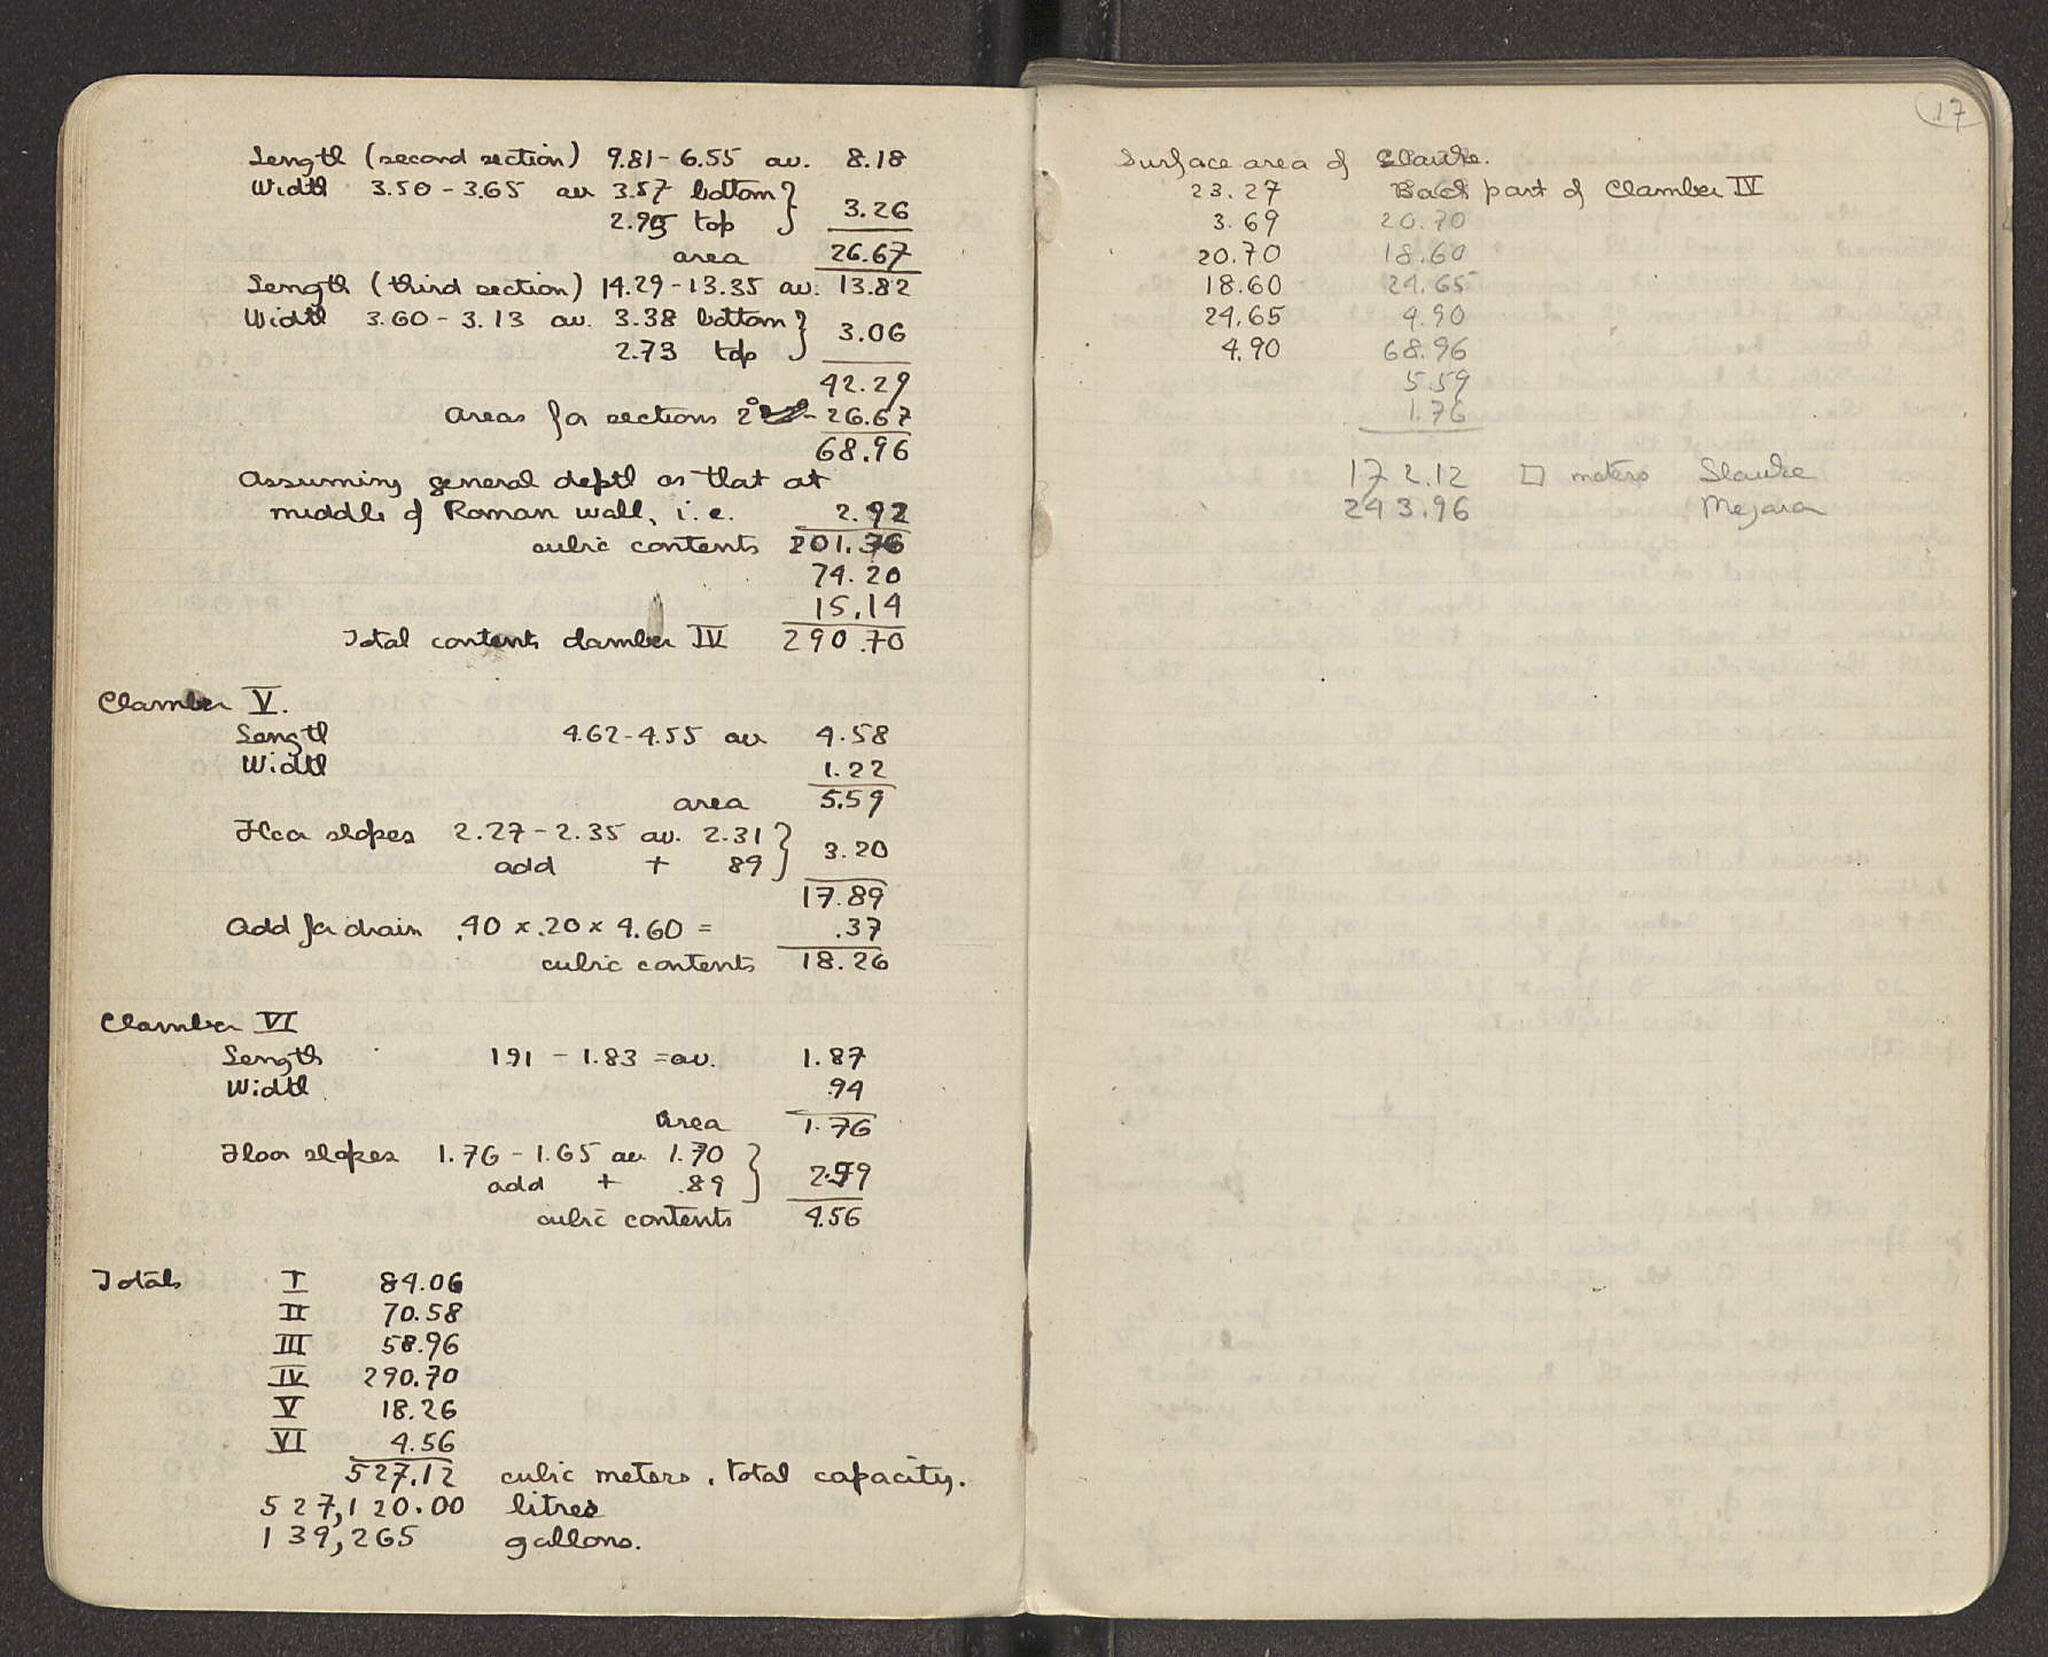 Length (second section) 9.81-6.55 av. 8.18
Width 3.50-3.65 av 3.57 bottom } 3.26
2.95 top
area 26.67
Length (third section) 14.29-13.35 av. 13.82
Width 3.60-3.13 av. 3.38 bottom } 3.06
2.73 top
42.29
Areas for sections 2 - 26.67
68.96
Assuming general depth as that at
middle of Roman wall, i.e. 2.92
cubic contents 201.36
74.20
15.14
Total contents chamber IV 290.70
Chamber V.
Length 4.62-4.55 av 4.58
Width 1.22
area 5.59
Floor slopes 2.27-2.35 av. 2.31 } 3.20
add + 89
17.89
Add for drain .40 x .20 x 4.60 = .37
cubic contents 18.26
Chamber VI
Length 1.91 - 1.83 = av. 1.87
Width .94
Area 1.76
Floor slopes 1.76-1.65 av. 1.70 } 2.59
add + .89
cubic contents 4.56
Totals I 84.06
II 70.58
III 58.96
IV 290.70
V 18.26
VI 4.56
527.12 cubic meters, total capacity.
527,120.00 litres
139,265 gallons.
17
Surface area of Glauke.
23.27 Back part of Chamber IV
3.69 20.70
20.70 18.60
18.60 24.65
24.65 4.90
4.90 68.96
5.59
1.76
172.12 □ meters Glauke
243.96 Megara